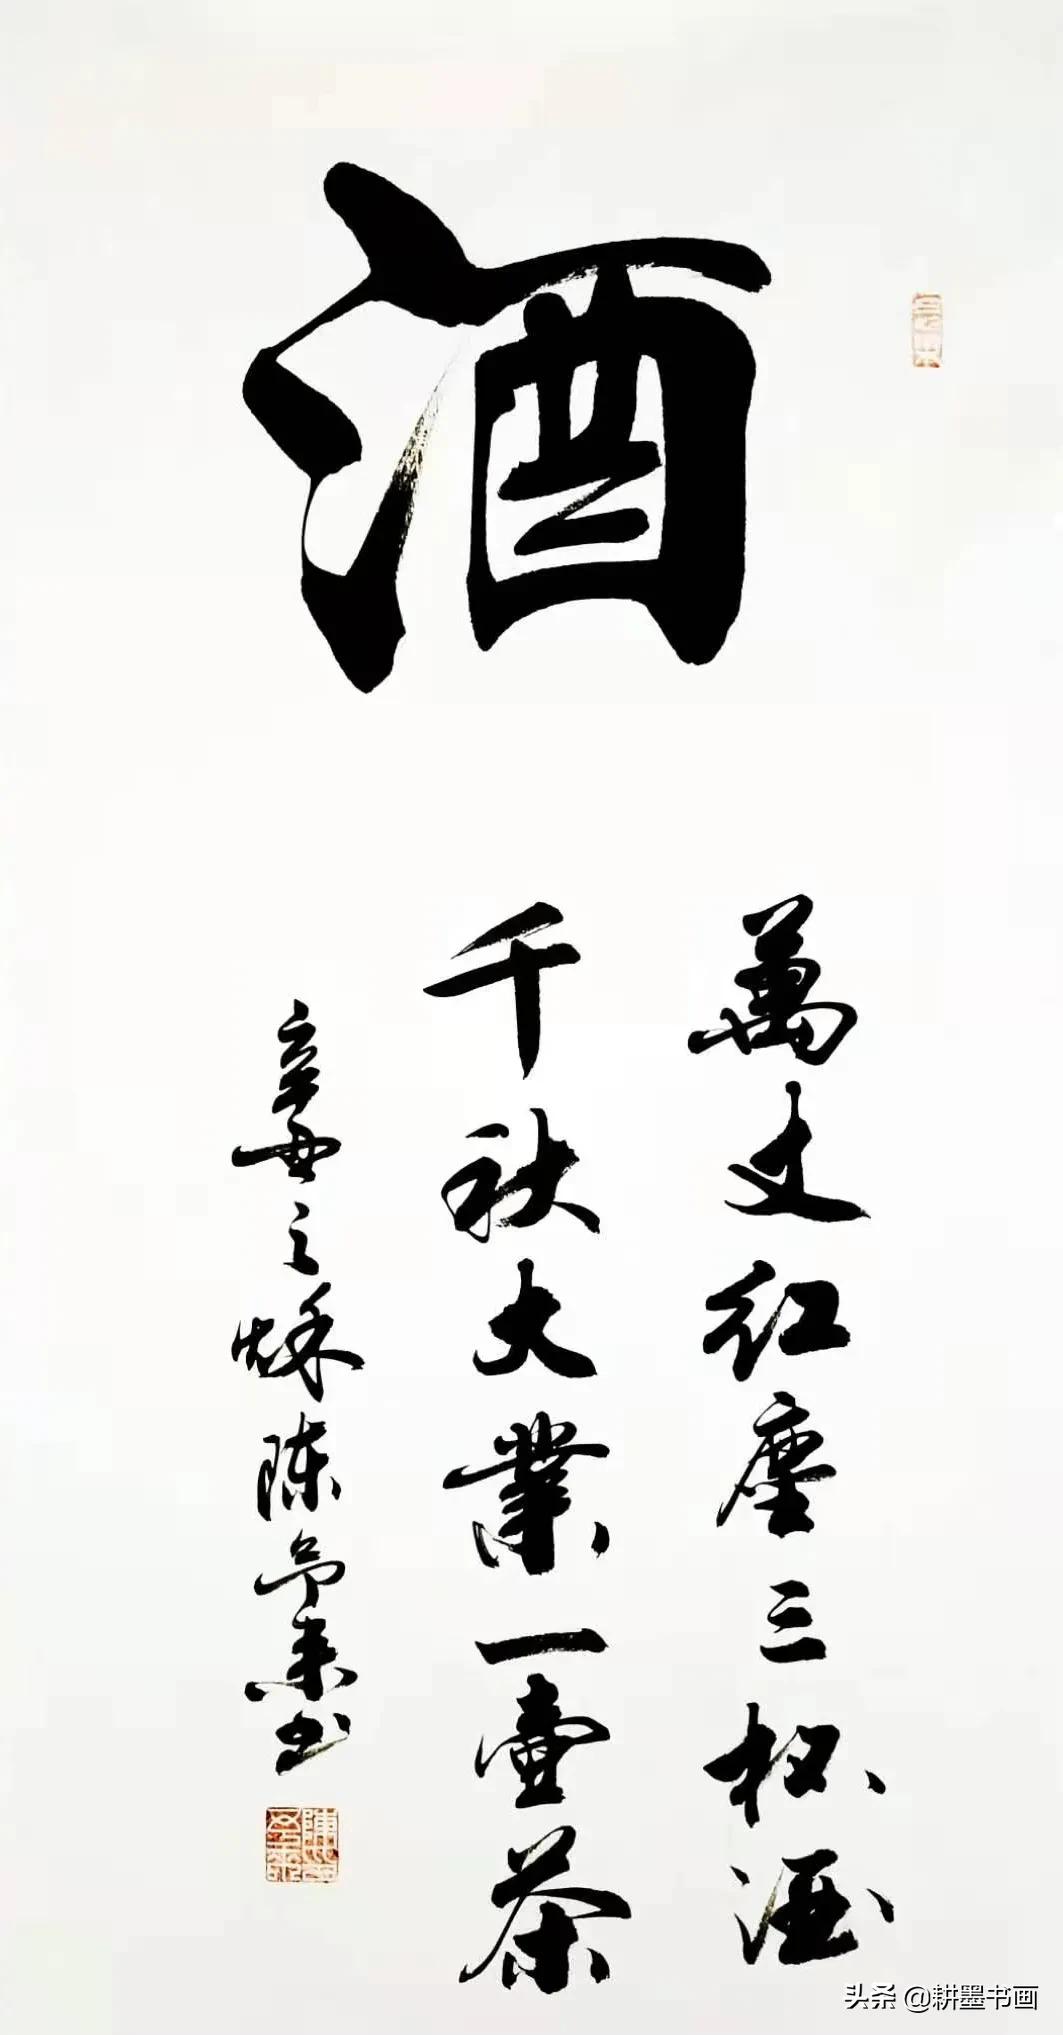 酒
萬丈红塵三杯酒
千秋大業一壷茶
辛丑之穌陈
头条 @耕墨书画